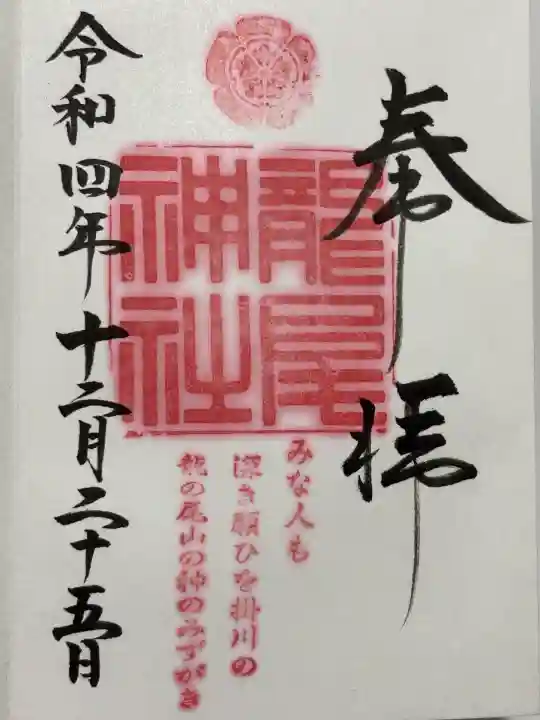 奉拝
龍尾神社
みな人も
深き願ひを掛川の
龍の尾山の神のみづがき
令和四年十二月二十五日